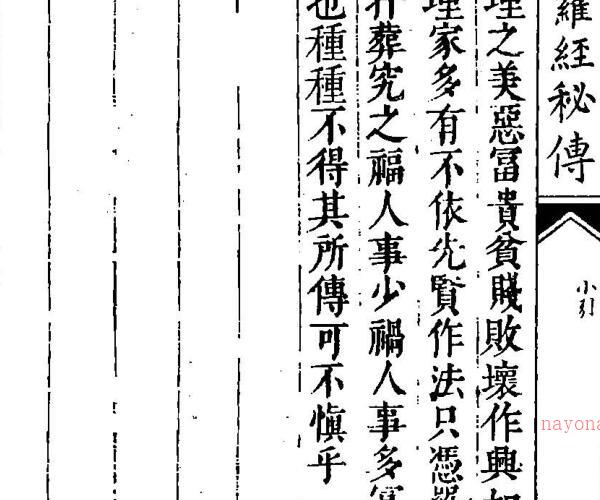 羅經秘傳
小引
理之美惡冨貴貧賤敗壞作興
理家多有不依先賢作法只憑
葬究之福人事少禍人事多
也種種不得其所傳可不愼乎
nayona